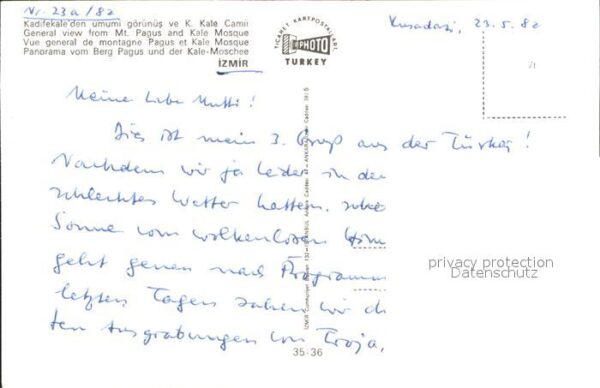 Nr. 23a/82
Kadifekale'den umumi görünüş ve K. Kale Camii
General view from Mt. Pagus and Kale Mosque
Vue general de montagne Pagus et Kale Mosque
Panorama vom Berg Pagus und der Kale-Moschee
İZMİR
TİCARET KARTPOSTALLARI
PHOTO
TURKEY
Kusadasi, 23.5.82
Meine liebe Mutti!
Dies ist mein 3. Gruß aus der Türkei!
Nachdem wir ja leider in den
schlechtes Wetter hatten,
Sonne vom wolkenlosen Him
geht genau nach Programm
letzten Tagen sahen wir di
ten Ausgrabungen von Troja,
35-36
privacy protection
Datenschutz